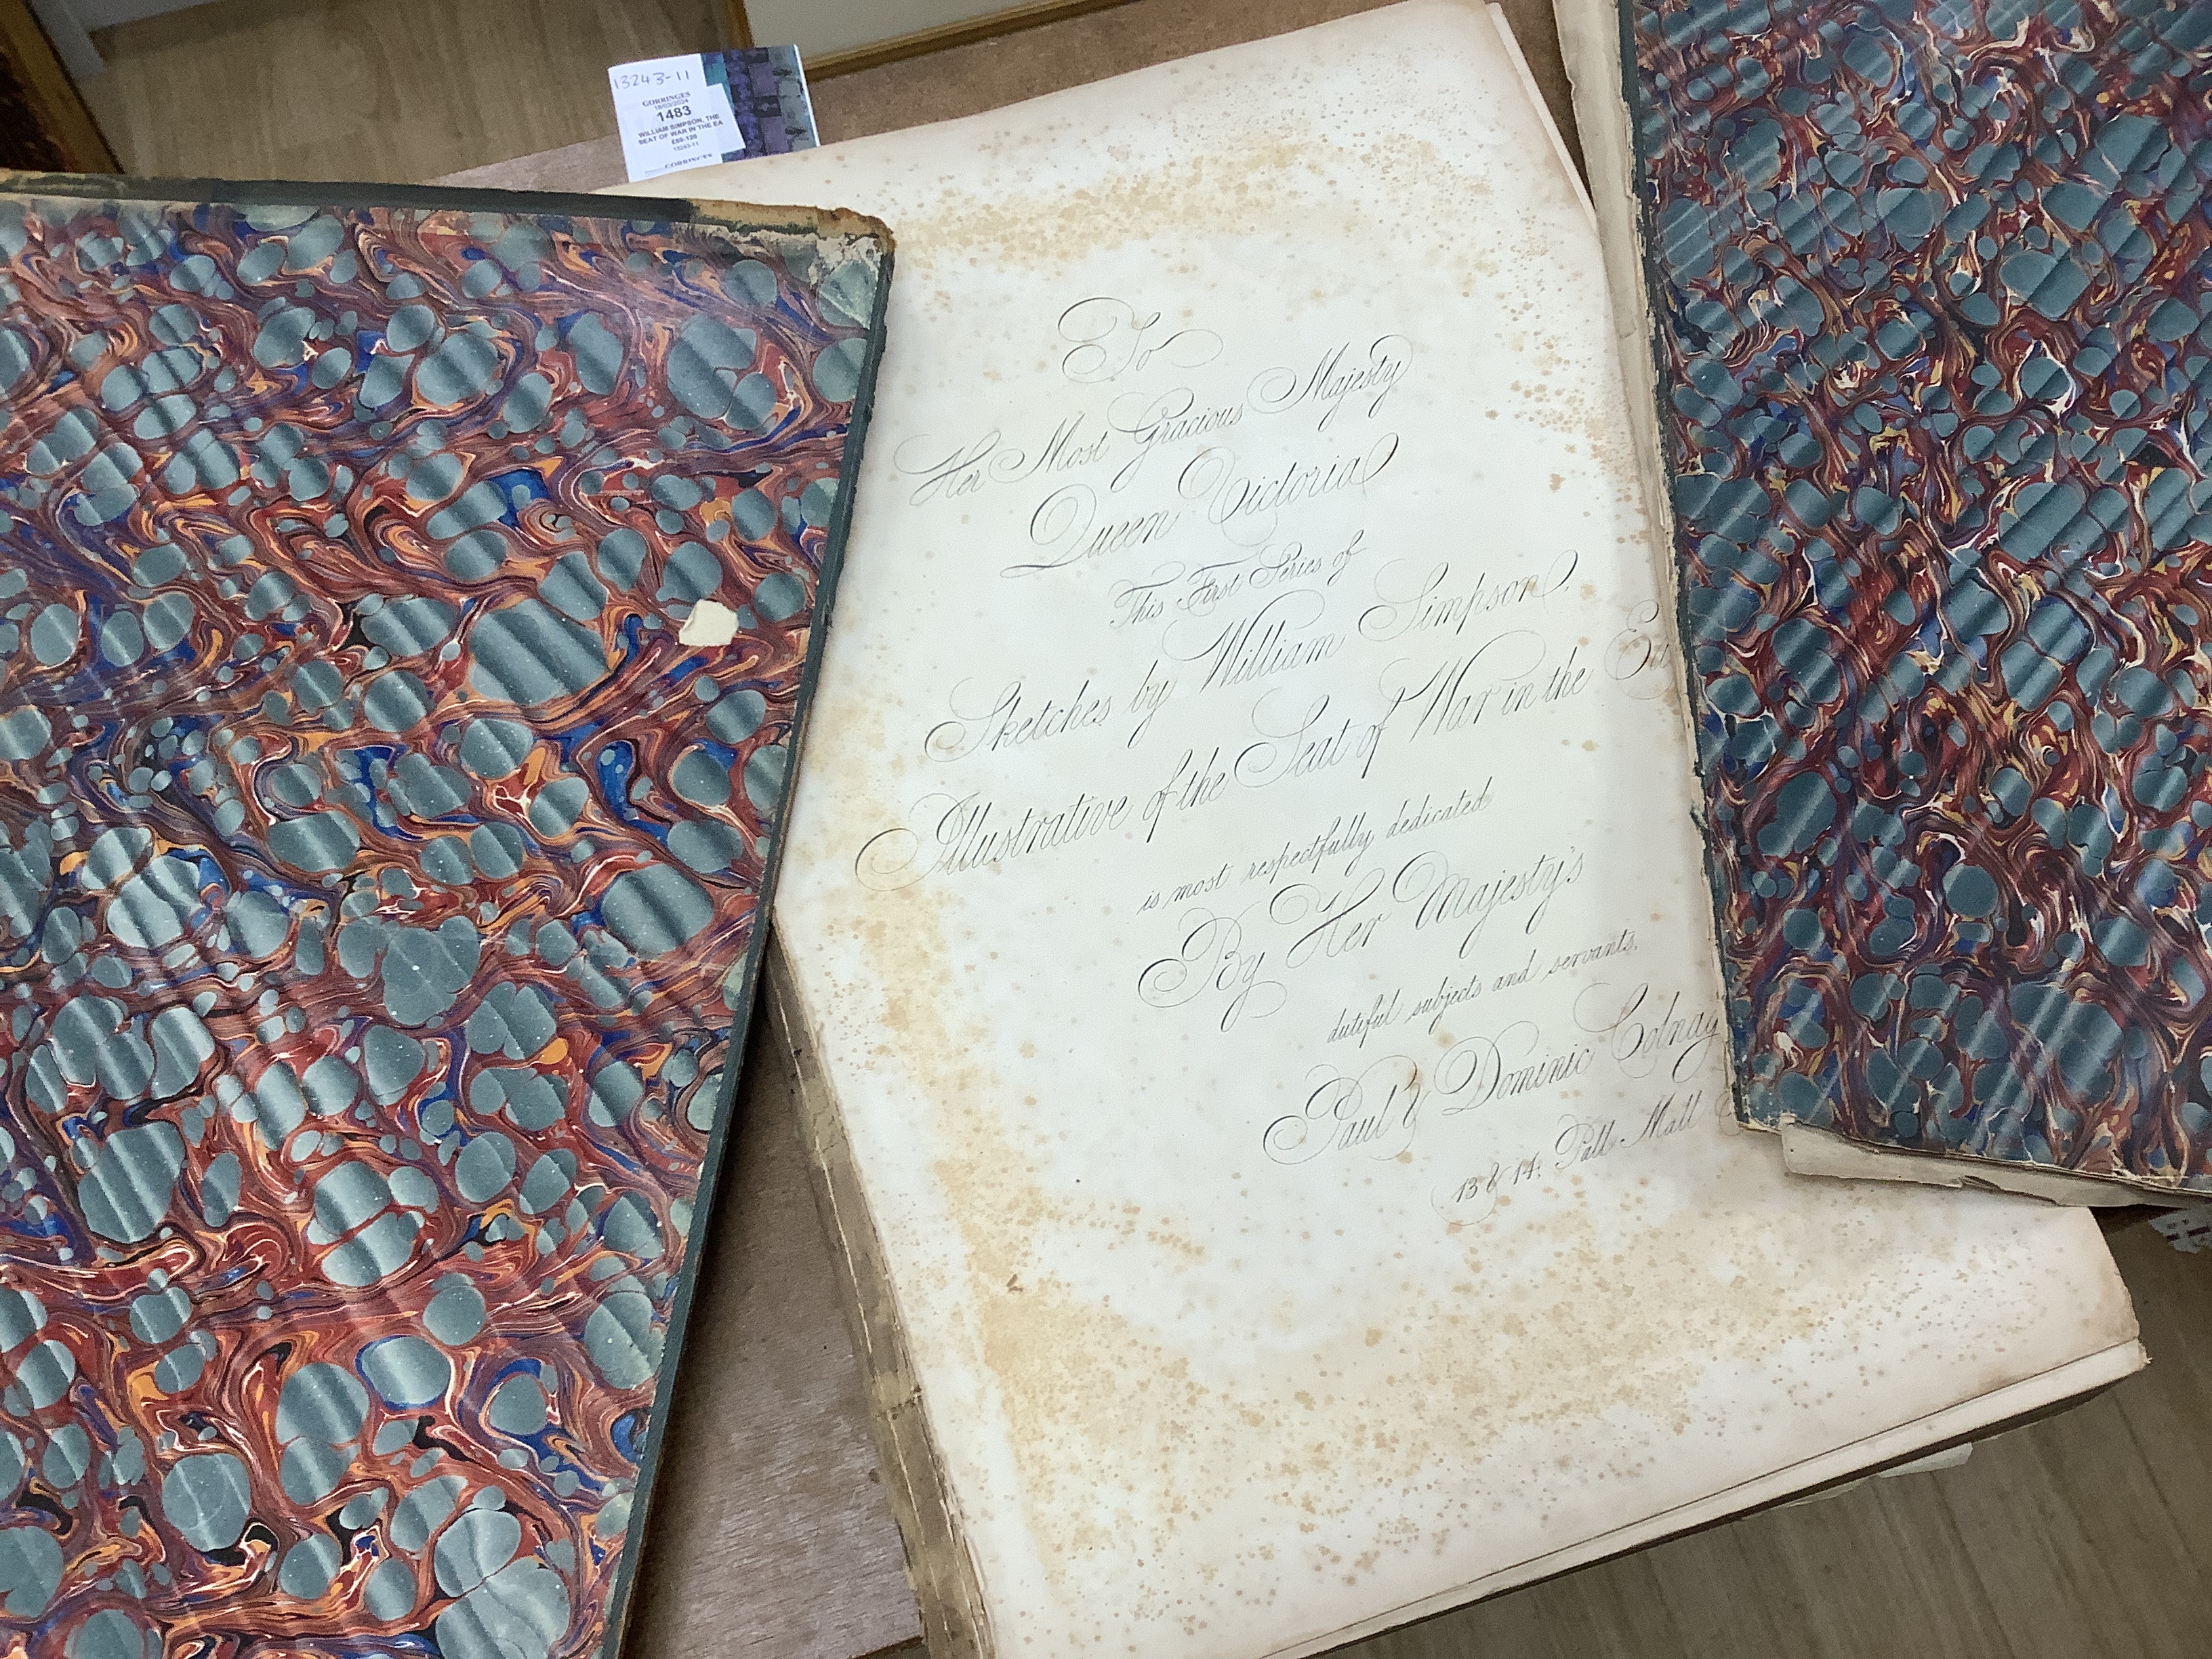 13243-11
GORRINGES
18/03/2024
1483
WILLIAM SIMPSON, THE
SEAT OF WAR IN THE EA
£80-120
13243-11
GORRINGES
To
Her Most Gracious Majesty
Queen Victoria
This First Series of
Sketches by William Simpson.
Illustrative of the Seat of War in the Ea
is most respectfully dedicated
By Her Majesty's
dutiful subjects and servants.
Paul & Dominic Colnag
13 & 14. Pall Mall